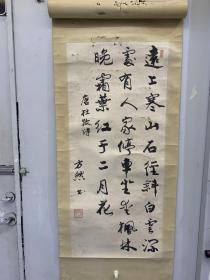 遠上寒山石徑斜白雲深
處有人家停車坐愛楓林
晚霜葉紅于二月花
唐杜牧詩
方然